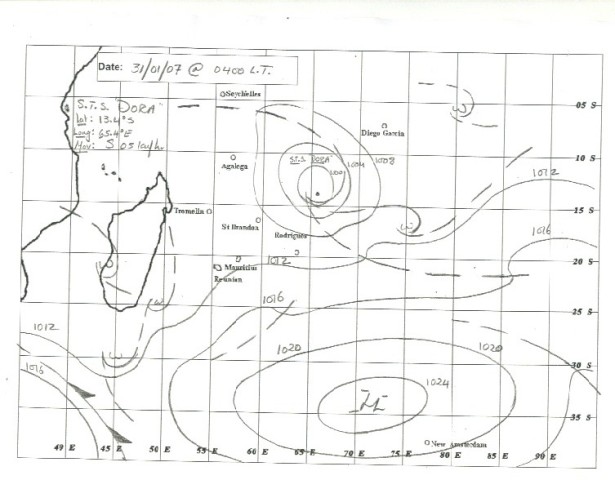 Date: 31/01/07 @ 0400 L.T.
S.T.S. "DORA"
Lat: 13.4°S
Long: 65.4°E
Mov: S 05 km/h.
Seychelles
05 S
Diego Garcia
S.T.S. "DORA"
1004
1008
10 S
Agalega
1000
1012
Tromelin
15 S
St Brandon
Rodrigues
1016
1012
20 S
Mauritius
Reunion
1016
25 S
1012
1020
1020
30 S
1016
1024
H
35 S
New Amsterdam
49 E
45 E
50 E
55 E
60 E
65 E
70 E
75 E
80 E
85 E
90 E